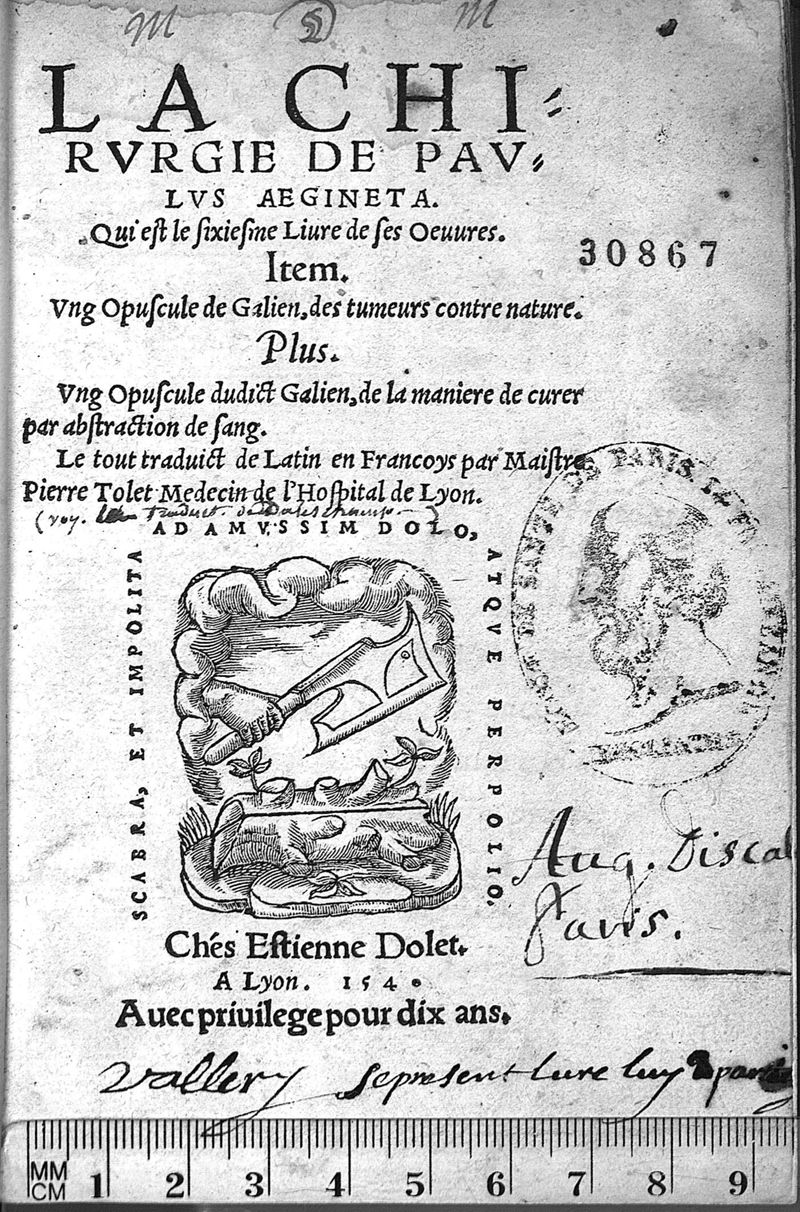 M S M
LA CHI⸗
RVRGIE DE PAV⸗
LVS AEGINETA.
Qui est le sixiesme Liure de ses Oeuures.
30867
Item.
Vng Opuscule de Galien, des tumeurs contre nature.
Plus.
Vng Opuscule dudict Galien, de la maniere de curer
par abstraction de sang.
Le tout traduict de Latin en Francoys par Maistre
Pierre Tolet Medecin de l'Hospital de Lyon.
(voy.
AD AMVSSIM DOLO,
ATQVE PERPOLIO.
SCABRA, ET IMPOLITA
DE PARIS
Aug. Discal
Paris.
Chés Estienne Dolet.
A Lyon. 1540
Auec priuilege pour dix ans.
Vallery present liure luy
MM
CM 1 2 3 4 5 6 7 8 9